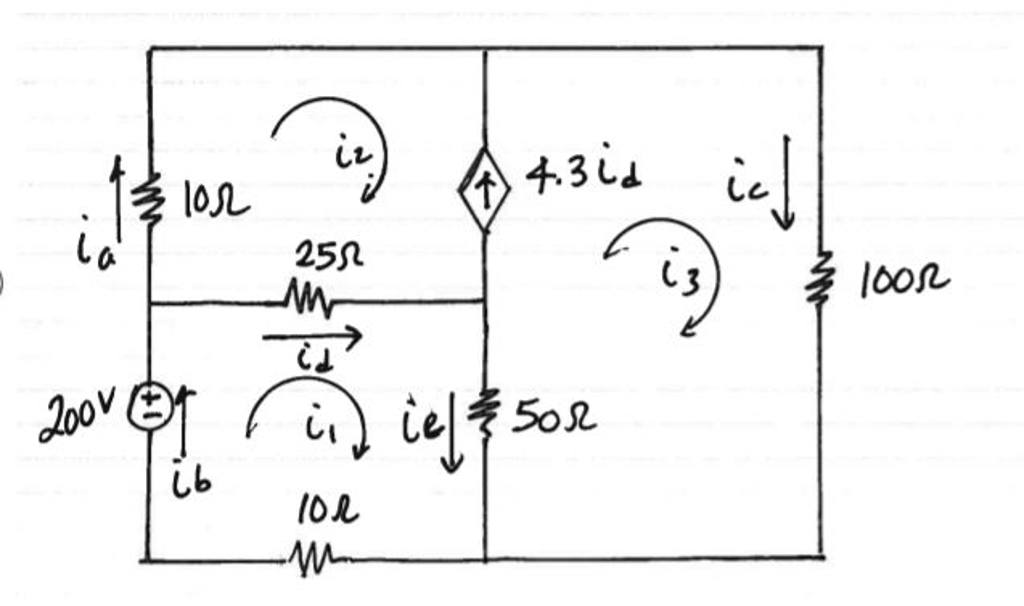 i2
10Ω
4.3 id
ic
ia
25Ω
i3
100Ω
id
200V
+
−
i1
ie
50Ω
ib
10Ω